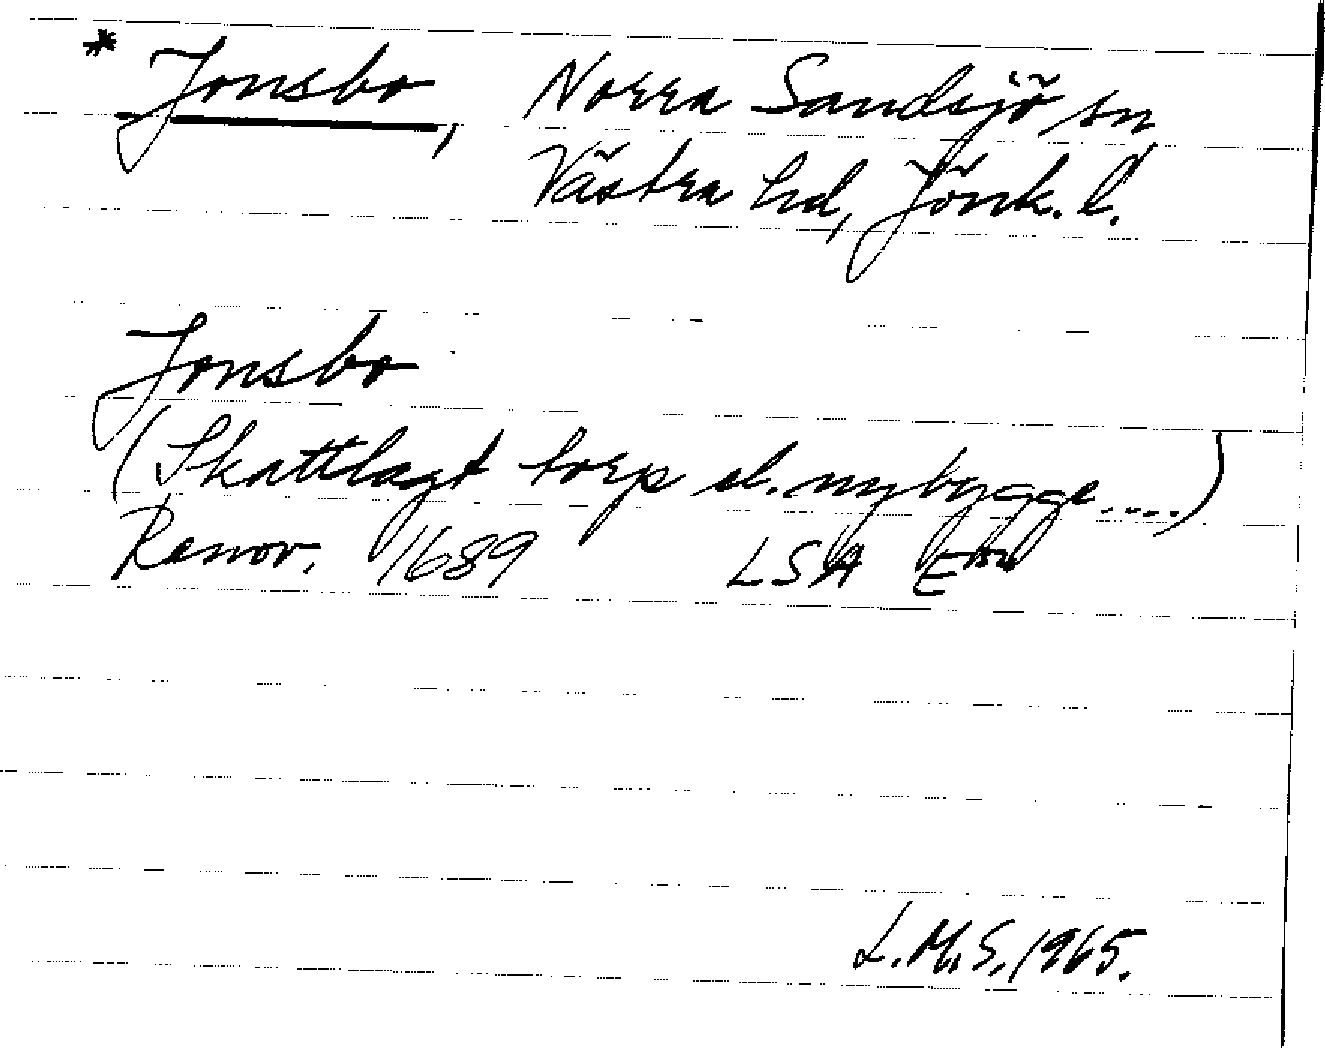 * Jonsbo, Norra Sandsjö sn
Västra hd, Jönk. l.
Jonsbo
(Skattlagt torp el. nybygge....)
Renov. 1689 LSA
L.M.S. 1965.